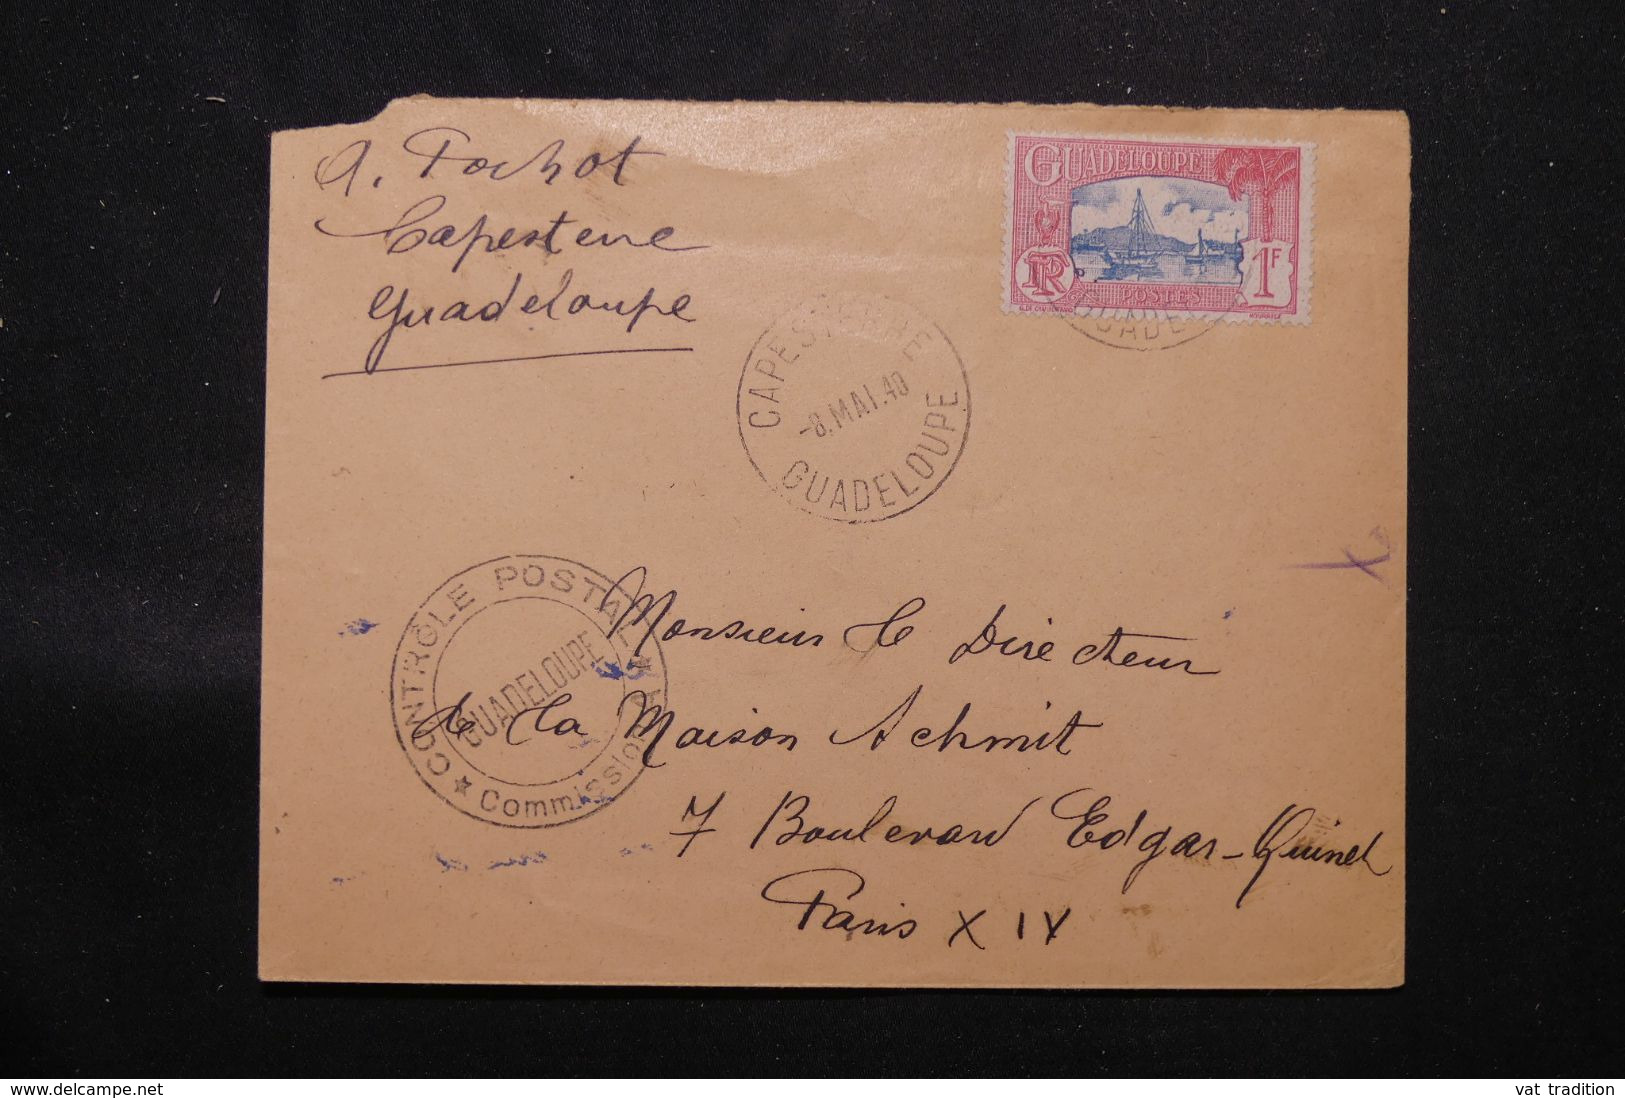 A. Pochot
Capesterre
Guadeloupe
GUADELOUPE
RF
POSTES
1F
GUADELOUPE
CAPESTERRE
-8.MAI.40
GUADELOUPE
CONTRÔLE POSTAL
GUADELOUPE
Commission A
Monsieur le Directeur
de la Maison Schmit
7 Boulevard Edgar-Quinet
Paris XIV
www.delcampe.net
vat tradition